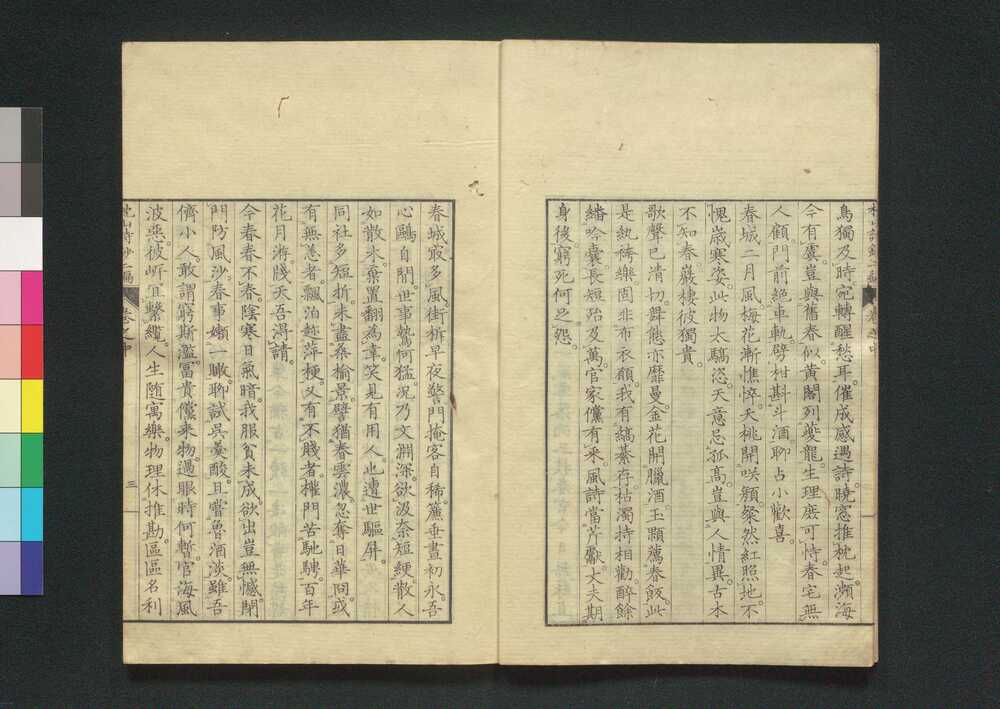 鳥獨及時宛轉醒愁耳。催成感遇詩。曉窓推枕起。瀕海
今有囊。豈與舊春似。黃閣列夔龍。生理庶可恃。春宅無
人顧。門前絕車軌。劈柑斟斗酒。聊占小歡喜。
春城二月風。梅花漸憔悴。夭桃開咲顏。粲然紅照地。不
愧歲寒姿。此物太驕恣。天意忌孤高。豈與人情異。古木
不知春。巖棲彼獨貴。
歌聲已清切。舞態亦靡曼。金花開臘酒。玉顆薦春飯。此
是紈袴樂。固非布衣願。我有縞綦存。枯濁持相勸。醉餘
繙吟囊。長短殆及萬。官家儻有采風詩當芹獻。丈夫期
身後。窮死何之怨。
春城寂多風。街柝早夜警。門掩客自稀。簾垂晝初永。吾
心鷗自閒。世事鷙何猛。況乃文淵深。欲汲奈短綆。散人
如散木。棄置翻為幸。笑見有用人。也遭世驅屏。
同社多短折。未盡桑榆景。譬猶春雲濃。忽奪日華冏。或
有無恙者。飄泊越萍梗。又有不賤者。權門苦馳騁。百年
花月將賤天吾得請。
今春春不春。陰寒日氣暗。我服貧未成。欲出豈無憾。閉
門防風沙。春事嬾一瞰。聊試吳羹酸。且嘗魯酒淡。雖吾
儕小人。敢謂窮斯濫。富貴儻來物。過眼時何暫。官海風
波惡。彼岸宜繫纜。人生隨寓樂。物理休推勘。區區名利
枕山詩鈔二編
卷之中
三